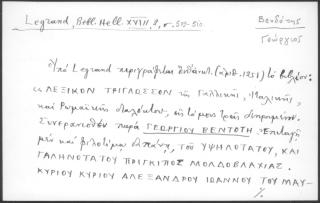 Legrand, Bibl. Hell. XVIII, 2, σ. 509-510.
Βενδότης
Γεώργιος
Ὑπὸ Legrand περιγράφεται (ἀριθ. 1251) τὸ βιβλίον:
«ΛΕΞΙΚΟΝ ΤΡΙΓΛΩΣΣΟΝ τῆς Γαλλικῆς, Ἰταλικῆς,
καὶ Ῥωμαϊκῆς διαλέκτου, εἰς τόμους τρεῖς διῃρημένον.
Συνερανισθὲν παρὰ ΓΕΩΡΓΙΟΥ ΒΕΝΤΟΤΗ Ἐπιταγῇ
μὲν καὶ φιλοτίμῳ δαπάνῃ, τοῦ ΥΨΗΛΟΤΑΤΟΥ, ΚΑΙ
ΓΑΛΗΝΟΤΑΤΟΥ ΠΡΙΓΚΙΠΟΣ ΜΟΛΔΟΒΛΑΧΙΑΣ
ΚΥΡΙΟΥ ΚΥΡΙΟΥ ΑΛΕΞΑΝΔΡΟΥ ΙΩΑΝΝΟΥ ΤΟΥ ΜΑΥ-
./.